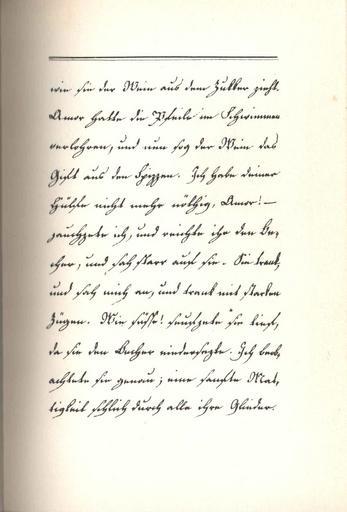 wie sie der Wein aus dem Zukker zieht.
Amor hatte die Pfeile im Schwimmen
verlohren, und nun sog der Wein das
Gift aus den Spizzen. Ich habe deiner
Hülfe nicht mehr nöthig, Amor! —
jauchzete ich, und reichte ihr den Be-
cher, und sah starr auf sie. Sie trank,
und sah mich an, und trank mit starken
Zügen. Wie süß! seufzete sie tief,
da sie den Becher niedersezte. Ich beob-
achtete sie genau; eine sanfte Mat-
tigkeit schlich durch alle ihre Glieder.